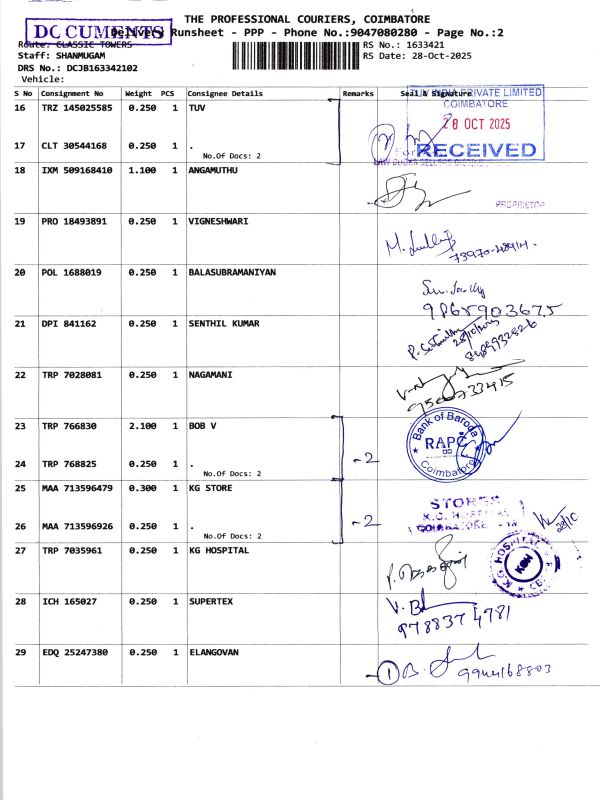 THE PROFESSIONAL COURIERS, COIMBATORE
DOCUMENTS
Delivery Runsheet - PPP - Phone No.:9047080280 - Page No.:2
Route: CLASSIC TOWERS
RS No.: 1633421
Staff: SHANMUGAM
RS Date: 28-Oct-2025
DRS No.: DCJB163342102
Vehicle:
S No Consignment No Weight PCS Consignee Details Remarks Seal & Signature
PRIVATE LIMITED
COIMBATORE
16 TRZ 145025585 0.250 1 TUV
28 OCT 2025
17 CLT 30544168 0.250 1 .
No.Of Docs: 2
RECEIVED
18 IXM 509168410 1.100 1 ANGAMUTHU
PROPRIETOR
19 PRO 18493891 0.250 1 VIGNESHWARI
20 POL 1688019 0.250 1 BALASUBRAMANIYAN
9865903675
21 DPI 841162 0.250 1 SENTHIL KUMAR
28/10/2025
22 TRP 7028081 0.250 1 NAGAMANI
23 TRP 766830 2.100 1 BOB V
-2
Bank of Baroda
RAPC
Coimbatore
24 TRP 768825 0.250 1 .
No.Of Docs: 2
25 MAA 713596479 0.300 1 KG STORE
-2
STORES
K.G. HOSPITAL
COIMBATORE - 18
28/10
26 MAA 713596926 0.250 1 .
No.Of Docs: 2
27 TRP 7035961 0.250 1 KG HOSPITAL
K.G. HOSPITAL
KGH
28 ICH 165027 0.250 1 SUPERTEX
9788374781
29 EDQ 25247380 0.250 1 ELANGOVAN
1
9944168803